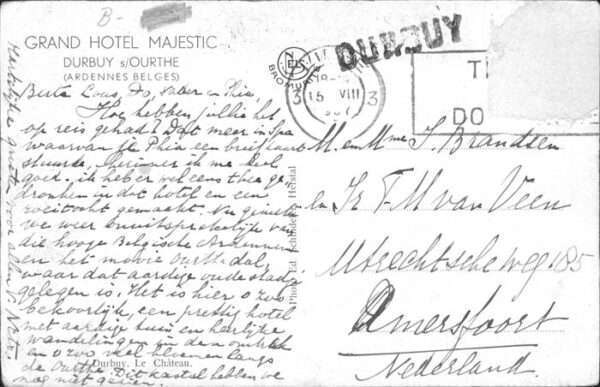 B-
GRAND HOTEL MAJESTIC
DURBUY s/OURTHE
(ARDENNES BELGES)
DURBUY
3 15 VIII 3
T
DO
Beste Cous, Do, Ader en Phia,
Hoe hebben jullie het
op reis gehad? Dat meer in Spa
waarvan je Phia een briefkaart
stuurde, herinner ik me heel
goed. ik heb er wel eens thee ge-
dronken in dat hotel en een
roeitocht gemaakt. Nu genieten
we weer onuitsprekelijk van
die hooge Belgische Ardennen
en het mooie Ourthe dal,
waar dat aardige oude stadje
gelegen is. Het is hier o zoo
bekoorlijk, een prettig hotel
met aardige tuin en heerlijke
wandelingen in den omtrek
en o zoo veel bloemen langs
de Ourthe. Dit kasteel hebben we
nog niet gezien.
Hartelijke groeten voor allen
M. en Mme J. Brandsen
en Ir F. M van Veen
Utrechtsche weg 185
Amersfoort
Nederland.
Durbuy. Le Château.
Herstal